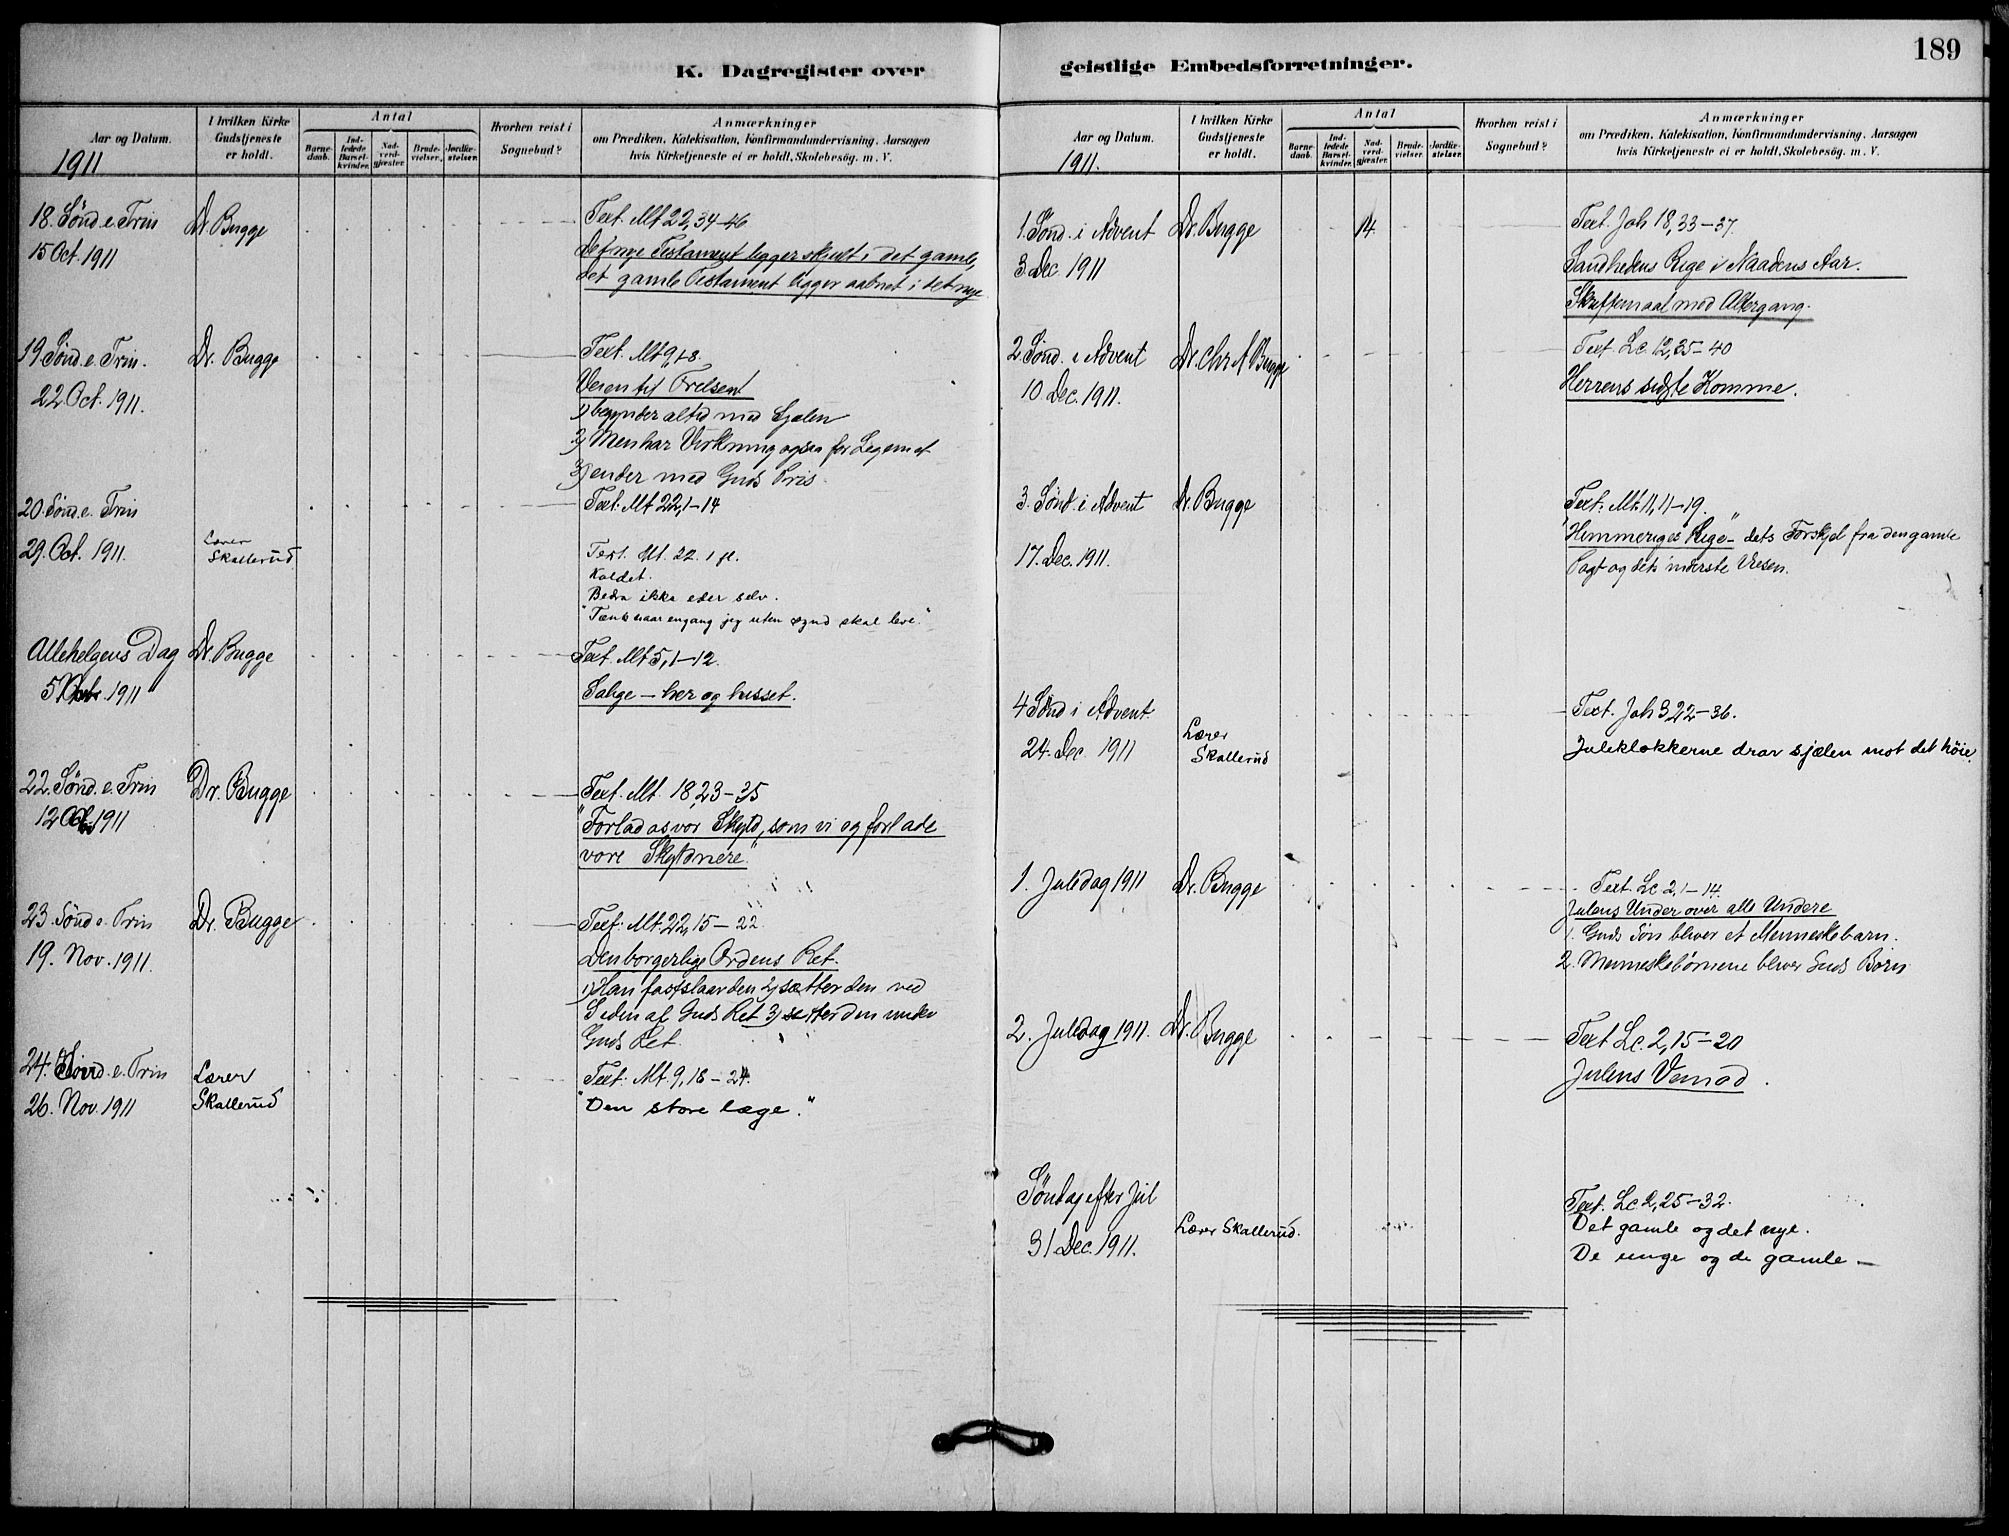 K. Dagregister over
Aar og Datum.
1911
I hvilken Kirke
Gudstjeneste
er holdt.
Antal
Barne-
daab.
Ind-
ledede
Barsel-
kvinder.
Nad-
verd-
gjæster.
Brude-
vielser.
Jordfæ-
stelser.
Hvorhen reist i
Sognebud?
Anmærkninger
om Prædiken, Katekisation, Konfirmandundervisning, Aarsagen
hvis Kirketjeneste ei er holdt, Skolebesög. m. V.
18. Sønd. e. Trin
15 Oct. 1911
Dr. Bugge
Text. Mt 22,34-46
Det nye Testament ligger skult i det gamle,
det gamle Testament ligger aabnet i det nye
19 Sønd. e. Trin.
22. Oct. 1911.
Dr. Bugge
Text. Mt 9,1-8.
Veien til Frelsen
1) begynder altid med Sjælen
2) Men har Virkning ogsaa for Legemet
3) ender med Guds Pris.
20. Sønd. e. Trin
29. Oct. 1911.
Lærer
Skallerud
Text: Mt 22,1-14
Text. Mt. 22. 1 fl.
Kaldet.
Bedra ikke eder selv.
"Tænk naar engang jeg uten synd skal leve."
Allehelgens Dag
5 1911
Dr. Bugge
Text. Mt 5,1-12.
Salige - her og hisset.
22. Sønd. e. Trin
12 1911
Dr. Bugge
Text. Mt. 18,23-35
"Forlad os vor Skyld, som vi og forlade
vore Skyldnere."
23. Sønd e. Trin
19. Nov. 1911.
Dr. Bugge
Text: Mt. 22,15-22
Den borgerlige Ordens Ret.
1) Han fastslaar den 2) sætter den ved
Siden af Guds Ret 3) sætter den under
Guds Ret.
24. Sønd. e. Trin
26. Nov. 1911
Lærer
Skallerud
Text: Mt. 9,18-24.
"Den store læge."
geistlige Embedsforretninger.
189
Aar og Datum.
1911.
I hvilken Kirke
Gudstjeneste
er holdt.
Antal
Barne-
daab.
Ind-
ledede
Barsel-
kvinder.
Nad-
verd-
gjæster.
Brude-
vielser.
Jordfæ-
stelser.
Hvorhen reist i
Sognebud?
Anmærkninger
om Prædiken, Katekisation, Konfirmandundervisning, Aarsagen
hvis Kirketjeneste ei er holdt, Skolebesög. m. V.
1. Sønd. i Advent
3 Dec. 1911
Dr. Bugge
14
Text. Joh 18,33-37.
Sandhedens Rige i Naadens Aar.
Skriftemaal med Altergang.
2. Sønd. i Advent
10 Dec. 1911.
Dr. Chr A Bugge
Text. Lc. 12,35-40
Herrens sidste Komme.
3. Sønd. i Advent
17. Dec. 1911.
Dr. Bugge
Text: Mt. 11,11-19.
"Himmeriges Rige" - dets Forskjel fra den gamle
Pagt og dets inderste Væsen.
4 Sønd i Advent.
24. Dec. 1911
Lærer
Skallerud
Text. Joh 3,22-36.
Juleklokkerne drar sjælen mot det høie.
1. Juledag 1911
Dr. Bugge
Text. Lc 2,1-14
Julens Under over alle Undere
1. Guds Søn bliver et Menneskebarn.
2. Menneskebørnene bliver Guds Børn
2. Juledag 1911.
Dr. Bugge
Text Lc. 2,15-20
Julens Vemod.
Søndag efter Jul
31 Dec. 1911.
Lærer Skallerud.
Text. Lc 2,25-32.
Det gamle og det nye.
De unge og de gamle -